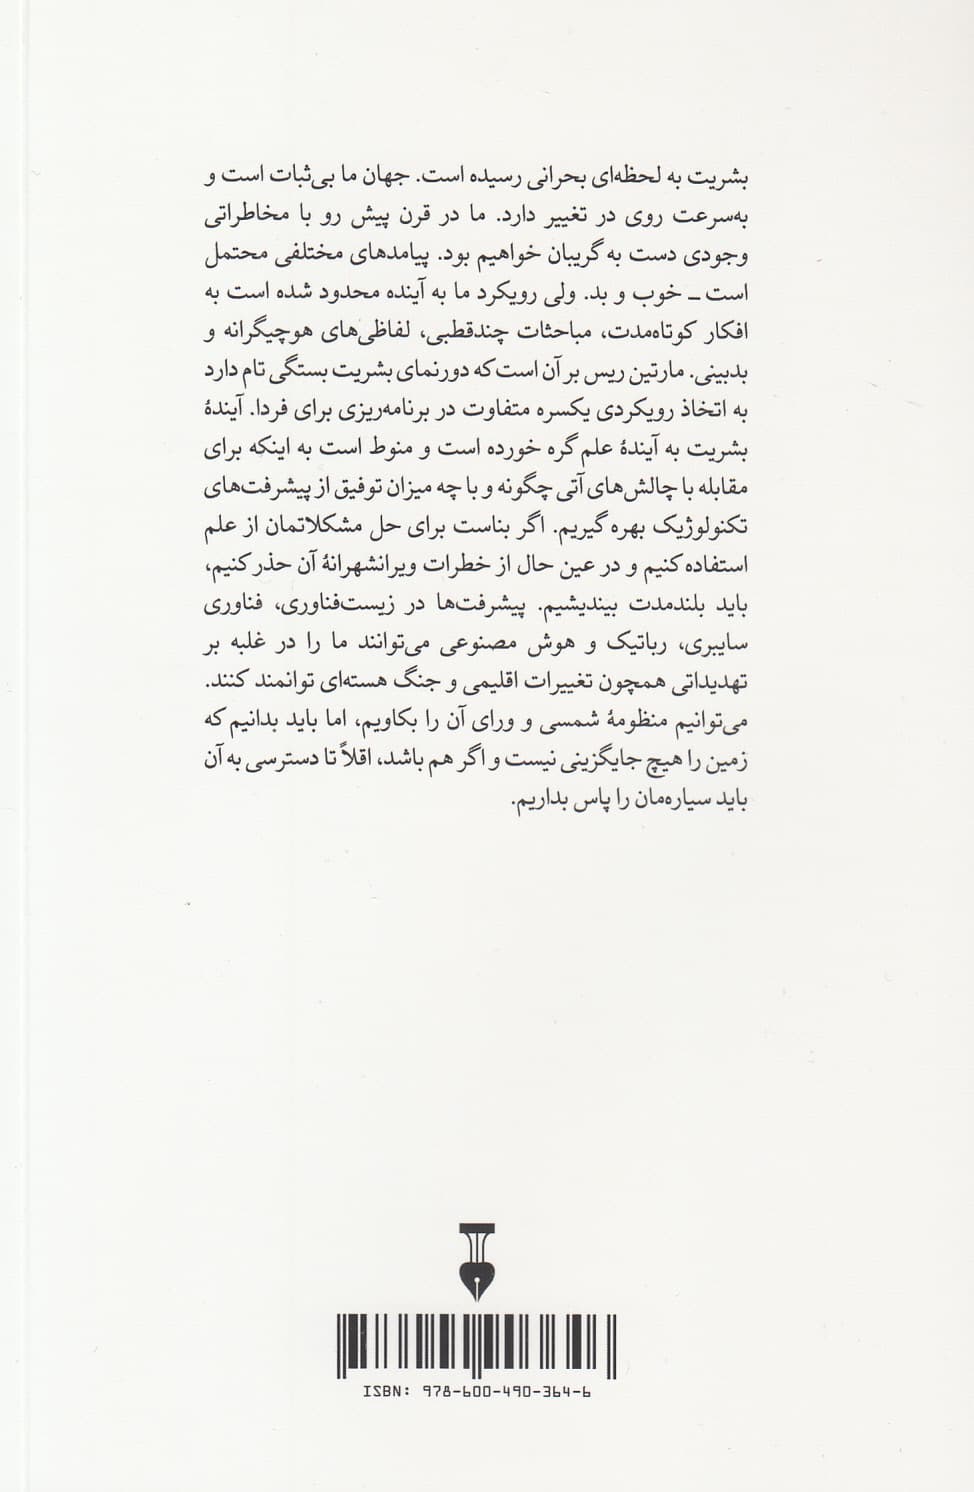 بشریت به لحظه‌ای بحرانی رسیده است. جهان ما بی‌ثبات است و
به‌سرعت روی در تغییر دارد. ما در قرن پیش رو با مخاطراتی
وجودی دست به گریبان خواهیم بود. پیامدهای مختلفی محتمل
است ـ خوب و بد. ولی رویکرد ما به آینده محدود شده است به
افکار کوتاه‌مدت، مباحثات چندقطبی، لفاظی‌های هوچیگرانه و
بدبینی. مارتین ریس بر آن است که دورنمای بشریت بستگی تام دارد
به اتخاذ رویکردی یکسره متفاوت در برنامه‌ریزی برای فردا. آیندهٔ
بشریت به آیندهٔ علم گره خورده است و منوط است به اینکه برای
مقابله با چالش‌های آتی چگونه و با چه میزان توفیق از پیشرفت‌های
تکنولوژیک بهره گیریم. اگر بناست برای حل مشکلاتمان از علم
استفاده کنیم و در عین حال از خطرات ویرانشهرانهٔ آن حذر کنیم،
باید بلندمدت بیندیشیم. پیشرفت‌ها در زیست‌فناوری، فناوری
سایبری، رباتیک و هوش مصنوعی می‌توانند ما را در غلبه بر
تهدیداتی همچون تغییرات اقلیمی و جنگ هسته‌ای توانمند کنند.
می‌توانیم منظومهٔ شمسی و ورای آن را بکاویم، اما باید بدانیم که
زمین را هیچ جایگزینی نیست و اگر هم باشد، اقلاً تا دسترسی به آن
باید سیاره‌مان را پاس بداریم.
ISBN: 978-600-490-364-6